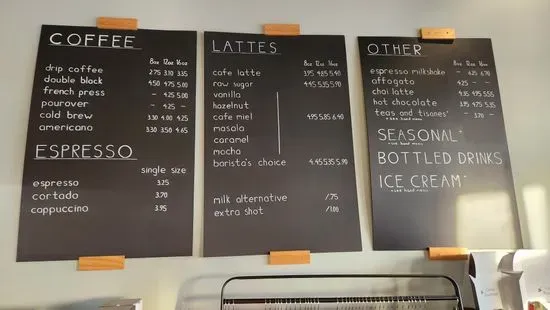 COFFEE
8oz 12oz 16oz
drip coffee 2.75 3.10 3.35
double black 4.50 4.75 5.00
french press - 4.25 5.00
pourover - 4.25 -
cold brew 3.30 4.00 4.25
americano 3.30 3.50 4.65
ESPRESSO
single size
espresso 3.25
cortado 3.70
cappuccino 3.95
LATTES
8oz 12oz 16oz
cafe latte 3.95 4.85 5.40
raw sugar 4.45 5.35 5.90
vanilla
hazelnut
cafe miel 4.95 5.85 6.40
masala
caramel
mocha
barista's choice 4.45 5.35 5.90
milk alternative /.75
extra shot /1.00
OTHER
8oz 12oz 16oz
espresso milkshake - 4.25 6.70
affogato - 4.25 -
chai latte 4.35 4.95 5.55
hot chocolate 3.95 4.75 5.35
teas and tisanes* - 3.70 -
* see hand menu
SEASONAL*
* see hand menu
BOTTLED DRINKS
ICE CREAM*
* see hand menu